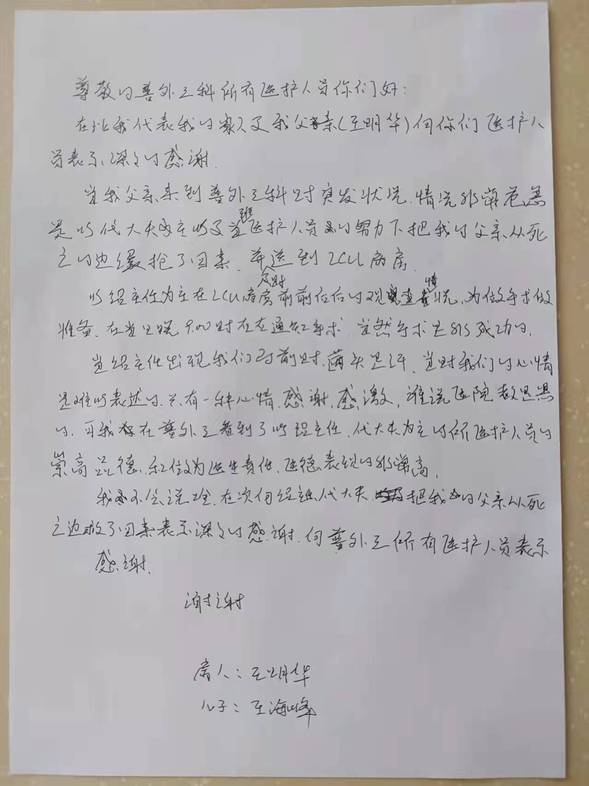 尊敬的普外三科所有医护人员你们好:
在此我代表我的家人及我父亲(王明华)向你们医护人
员表示深深的感谢.
当我父亲来到普外三科时突发状况.情况非常危急
是以代大夫为主的及值班医护人员的努力下把我的父亲从死
亡的边缘抢了回来.并送到ICU病房.
以经主任为主在ICU病房前前后后及时的观查情况,为做手术做
准备.在当日晚9.00时左右通知手术.当然手术是非常成功的.
当经主任出现我们面前时.满头是汗.当时我们的心情
是难以表述的.只有一种心情.感谢.感激,谁说医院都是黑
的.可我在普外三看到了以经主任,代大夫为主的所医护人员的
崇高品德.和做为医生责任.医德表现的非常高.
我也不会说啥.在次向经主任代大夫把我的父亲从死
亡边抢了回来表示深深的感谢.向普外三所有医护人员表示
感谢.
谢谢
病人:王明华
儿子:王海峰